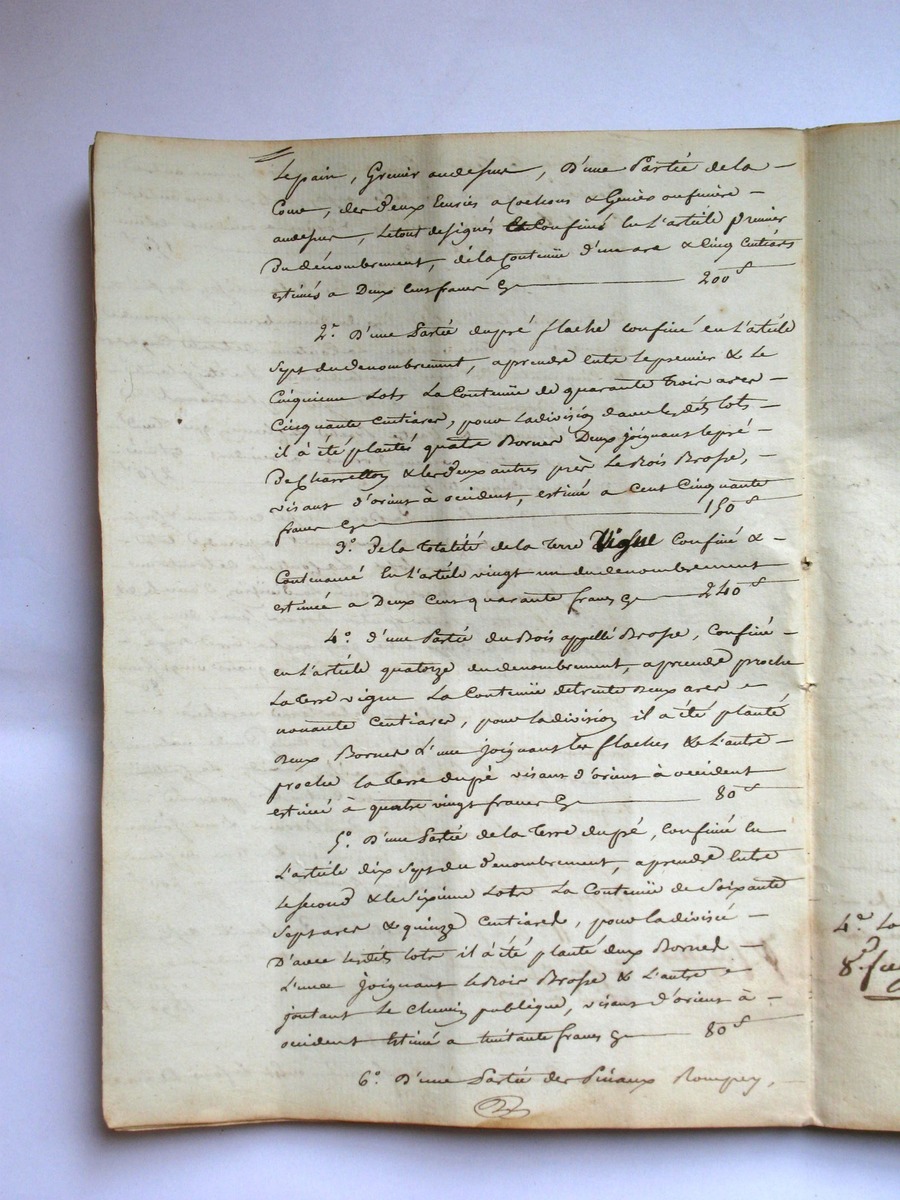 le pain, Grenier audessus, D'une Partie de la
Cour, des deux Ecuries a Cochons & Geniès ou finière
audessus, le tout designés Confinés en L'article premier
du denombrement, de la Contenüe d'un are & Cinq Centiares
estimés a Deux Cent francs Cy 200 f
2° D'une Partie du pré flache confiné en L'atićle
Sept du denombrement, a prendre entre le premier & le
Cinquieme Lots La Contenüe de quarante trois ares
Cinquante Centiares, pour la division davec les dits lots
il à été plantés quatre Bornes Deux joignant le pré
De Charretton & les deux autres près Le Bois Brosse,
visant d'orient à occident, estimé a Cent Cinquante
francs Cy 150 f
3° De la totalité de la Terre Vigne Confiné &
Contenancé En L'article vingt un du denombrement
estimée a Deux Cent quarante francs Cy 240 f
4° d'une Partie du Bois appellé Brosse, Confiné
en L'article quatorze du denombrement, a prendre proche
La Terre vigne La Contenüe de trente deux ares
nonante Centiares, pour la division il a été planté
deux Bornes L'une joignant les flaches & L'autre
proche la Terre du pé visant d'orient à occident
estimé à quatre vingt francs Cy 80 f
5° D'une Partie de la Terre du pé, Confiné En
L'article dix Sept du denombrement, a prendre Entre
le second & le Sixieme Lots La Contenüe de Soixante
Sept ares & quinze Centiares, pour la divisié
D'avec les dits lots il à été planté deux Bornes
L'une joignant le Bois Brosse & L'autre
joutant Le Chemin publique, visant d'orient à
occident Estimé a huitante francs Cy 80 f
6° D'une Partie des Pinaux Rompey,
4° Lo
8.